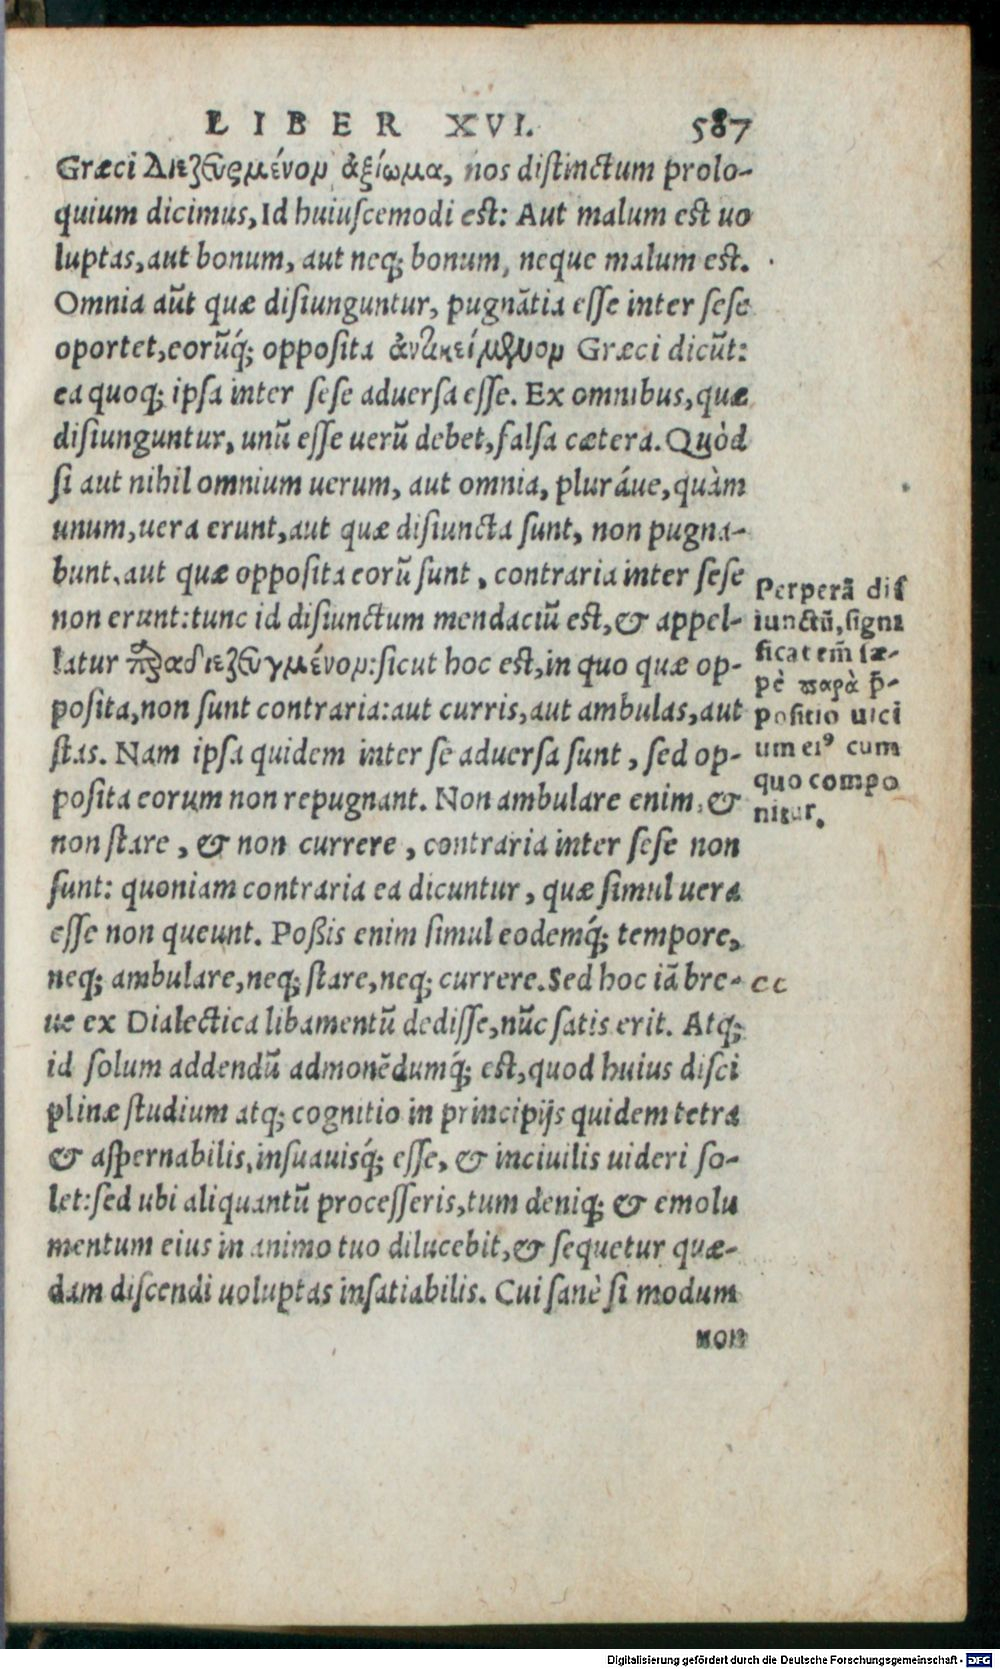 LIBER XVI. 587
Græci Διεζευγμένον ἀξίωμα, nos distinctum prolo-
quium dicimus, Id huiuscemodi est: Aut malum est uo
luptas, aut bonum, aut neq; bonum, neque malum est.
Omnia aũt quæ disiunguntur, pugnãtia esse inter sese
oportet, eorũq́; opposita ἀντικείμενον Græci dicũt:
ea quoq; ipsa inter sese aduersa esse. Ex omnibus, quæ
disiunguntur, unũ esse uerũ debet, falsa cætera. Quòd
si aut nihil omnium uerum, aut omnia, pluráue, quàm
unum, uera erunt, aut quæ disiuncta sunt, non pugna-
bunt, aut quæ opposita eorũ sunt, contraria inter sese
non erunt: tunc id disiunctum mendaciũ est, & appel-
latur παραδιεζευγμένον: sicut hoc est, in quo quæ op-
posita, non sunt contraria: aut curris, aut ambulas, aut
stas. Nam ipsa quidem inter se aduersa sunt, sed op-
posita eorum non repugnant. Non ambulare enim, &
non stare, & non currere, contraria inter sese non
sunt: quoniam contraria ea dicuntur, quæ simul uera
esse non queunt. Poßis enim simul eodemq́; tempore,
neq; ambulare, neq; stare, neq; currere. Sed hoc iã bre-
ue ex Dialectica libamentũ dedisse, nũc satis erit. Atq;
id solum addendũ admonẽdumq́; est, quod huius disci
plinæ studium atq; cognitio in principijs quidem tetra
& aspernabilis, insuauisq́; esse, & inciuilis uideri so-
let: sed ubi aliquantũ processeris, tum deniq; & emolu
mentum eius in animo tuo dilucebit, & sequetur quæ-
dam discendi uoluptas insatiabilis. Cui sanè si modum
non
Perperã dis
iunctũ, signi
ficat em̃ sæ-
pè παρὰ p̃-
positio uici
um ei⁹ cum
quo compo
nitur.
cc
Digitalisierung gefördert durch die Deutsche Forschungsgemeinschaft - DFG